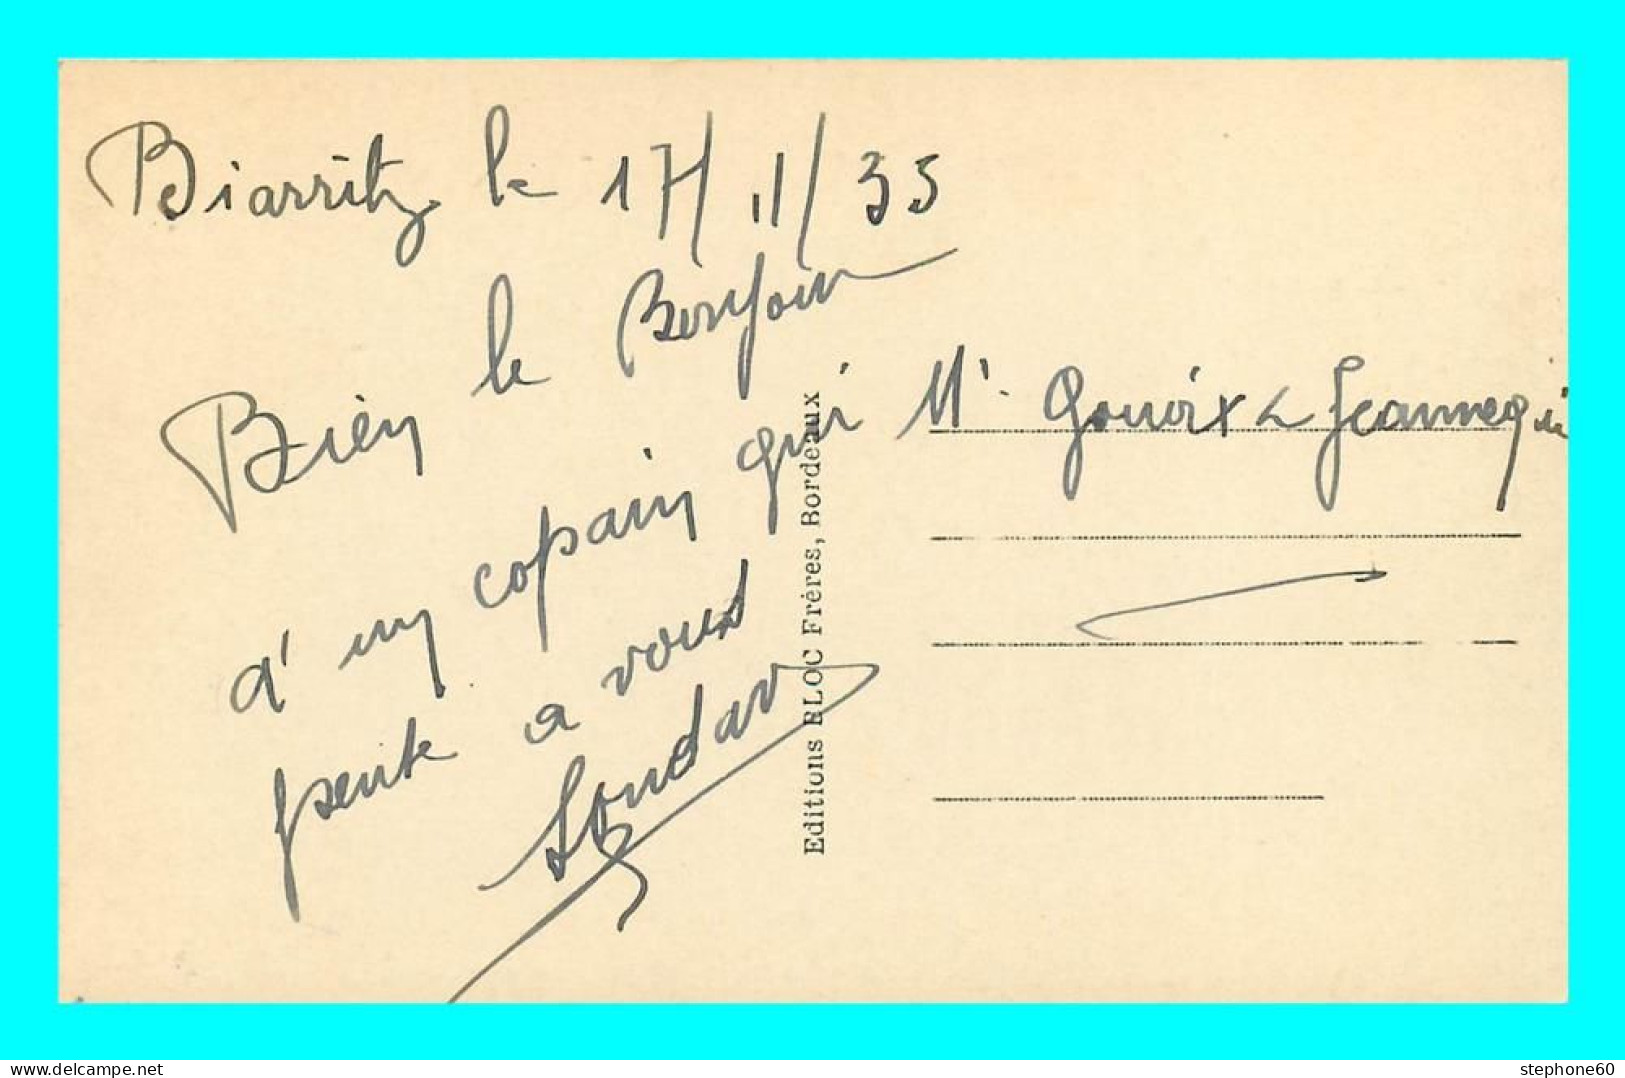 Biarritz le 17/11/35
Bien le Bonjour
d'un copain qui
pente a vous
Soudar
Editions BLOC Frères, Bordeaux
Mr Gouoix & Jeannequin
delcampe.net
stephone60